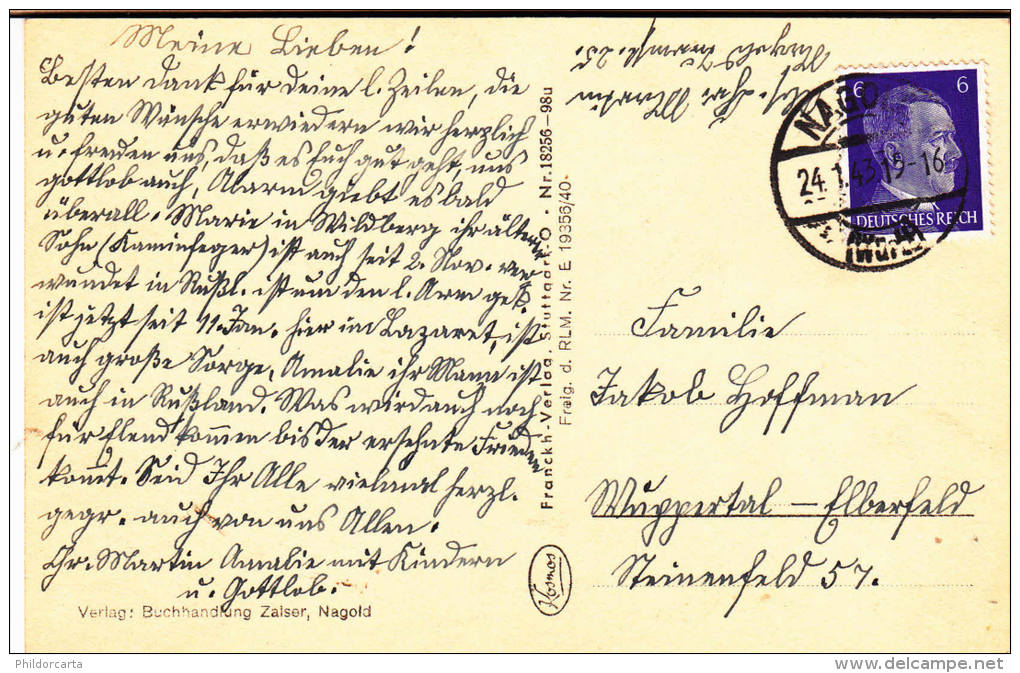 Meine Lieben!
Besten Dank für Deine l. Zeilen, die
guten Wünsche erwiedern wir herzlich
u. freuen uns, daß es Euch gut geht, uns
gottlob auch, Alarm giebt es bald
überall. Marie in Wildberg ihr älterer
Sohn (Kaminfeger) ist auch seit 2. Nov. ver
wundet in Rußl. ist um den l. Arm gek.
ist jetzt seit 11. Jan. hier im Lazaret, ist
auch große Sorge, Amalie ihr Mann ist
auch in Rußland. Was wird auch noch
für Elend kommen bis der ersehnte Frieden
kommt. Seid Ihr Alle vielmal herzl.
gegr. auch von uns Allen.
Chr. Martin Amalie mit Kindern
u. Gottlob.
Verlag: Buchhandlung Zaiser, Nagold
Franckh-Verlag, Stuttgart-O · Nr. 18256—98u
Freig. d. RLM. Nr. E 19356/40
Kosmos
Chr. Martin
Nagold
25.
NAGO
24.1.43 19-16
(Württ
6 6
DEUTSCHES REICH
Familie
Jakob Hoffman
Wuppertal – Elberfeld
Steinenfeld 57.
Phildorcarta
http://www.delcampe.net